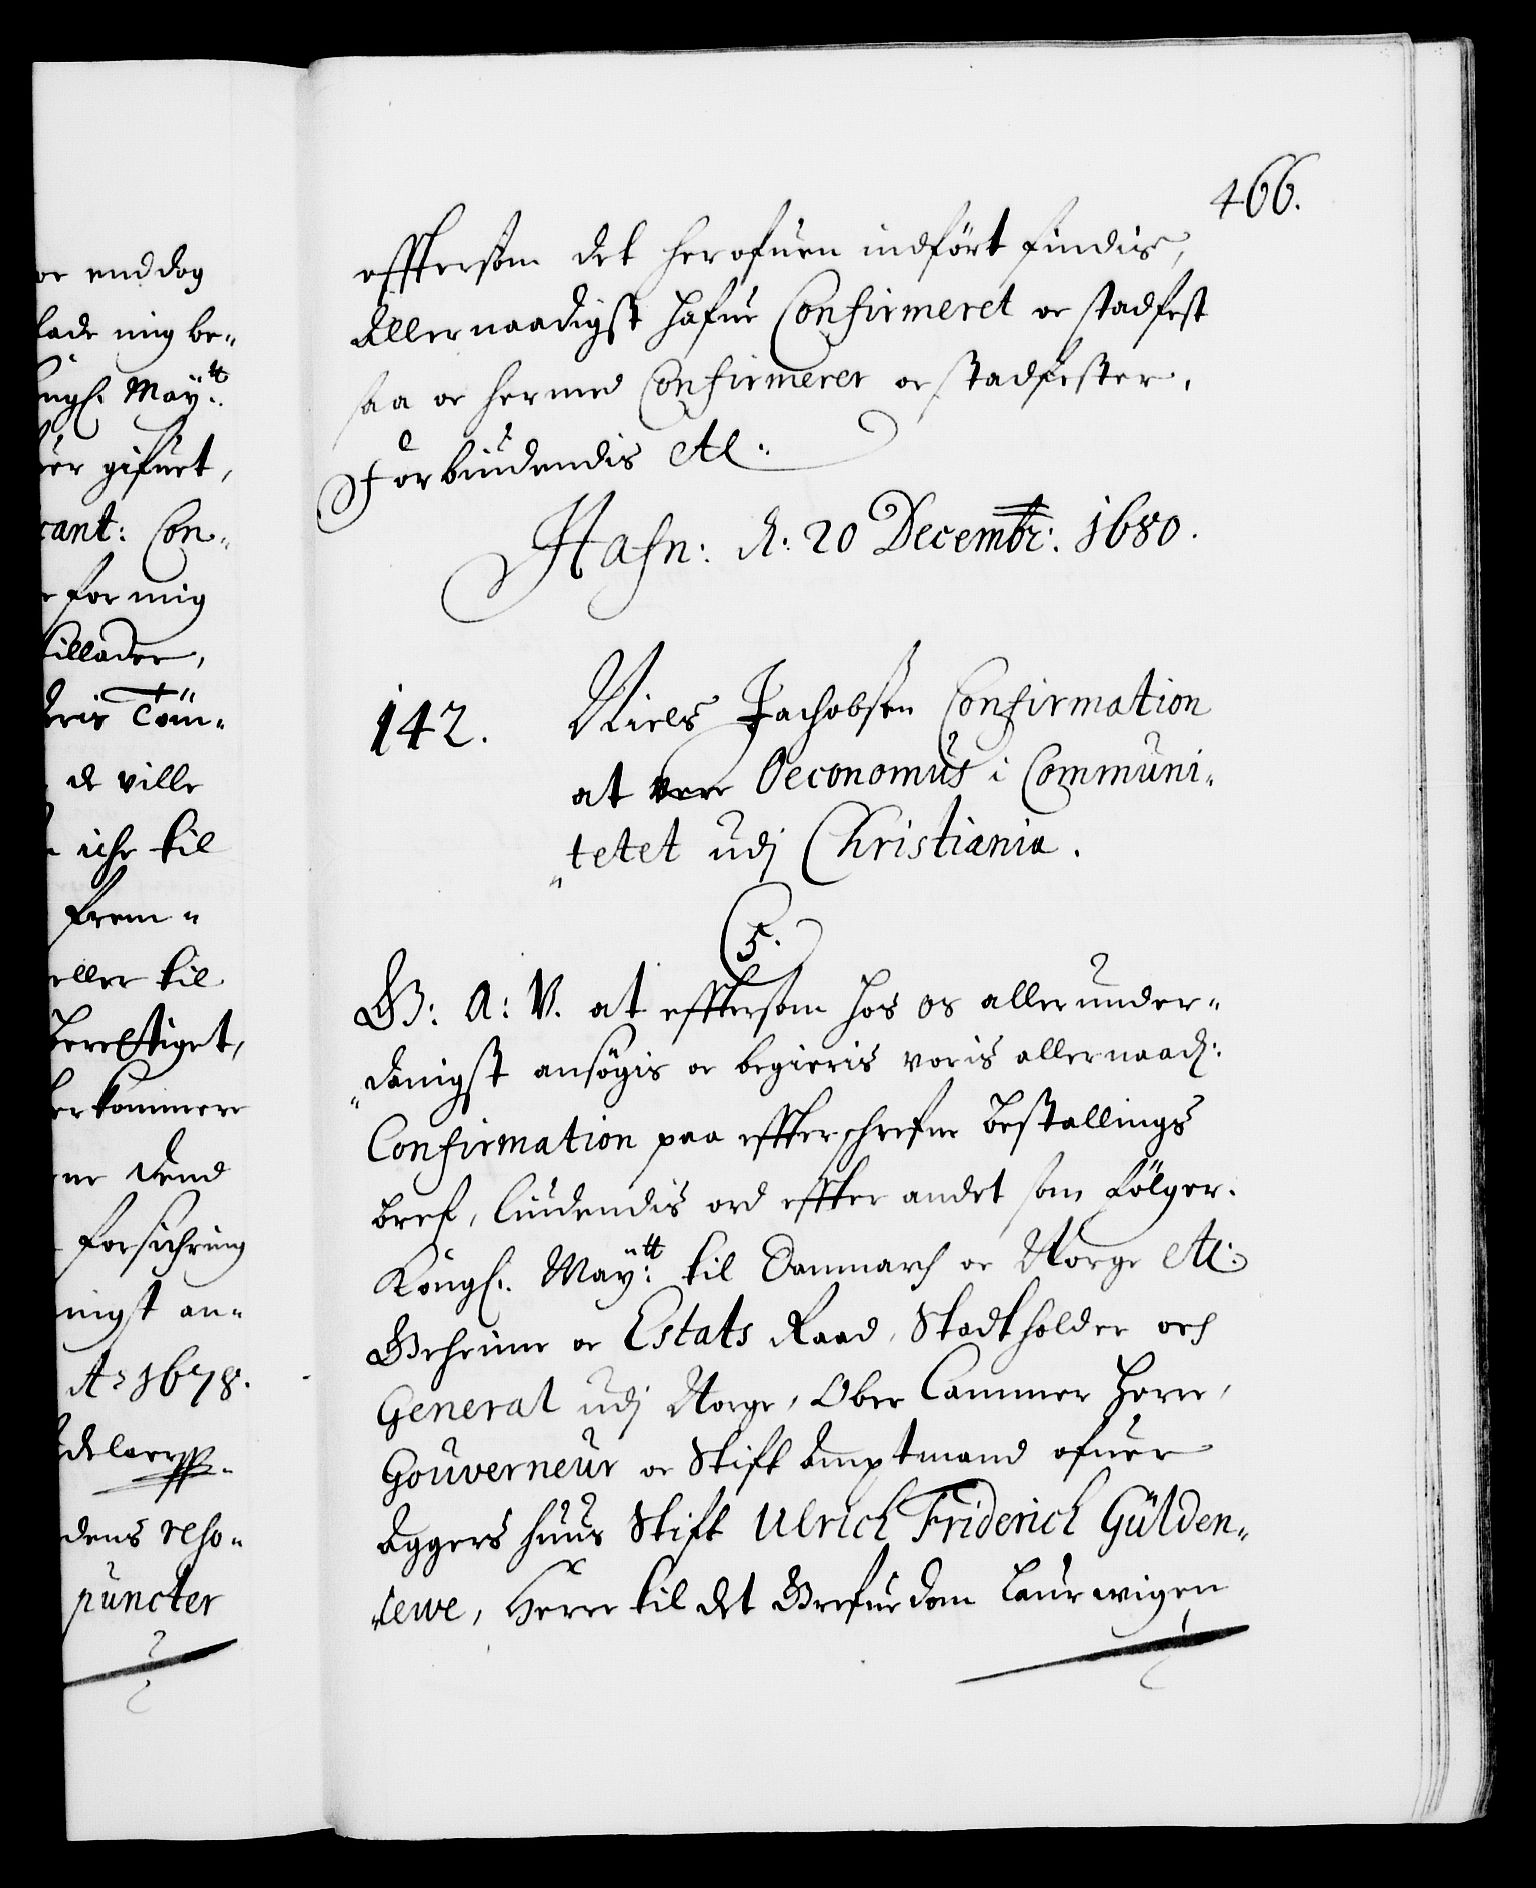 466.
effttersom det herofuen indfört findis,
Allernaadigst hafue Confirmeret oc stadfest
saa oc hermed Confirmerer oc stadfester.
Forbiudendis etc:
Hafn: d: 20 Decembr: 1680.
142. Niels Jachobsen Confirmation
at vere Oeconomus i Communi-
tetet udj Christiania.
C5.
G: A: V. at effttersom hos os allerunder-
danigst ansögis oc begieris voris allernaad:
Confirmation paa efftterschrefne bestallings
bref, liudendis ord efftter andet som fölger.
Kongl. Maÿ:tt til Danmarch oc Norge etc:
Geheime oc Estats Raad, Stadtholder och
General udj Norge, Ober Cammer Herre,
Gouverneur oc Stift Amptmand ofuer
Aggershuus Stift Ulrich Friderich Gülden-
lewe, Herre til det Grefuedom Laurwigen
oc enddog
lade mig be-
ongl. Maÿ:tt
gifuet,
cant: Con-
for mig
tillader,
Töm-
de ville
iche til
frem-
eller til
berettiget,
kommere
dend
forsichring
ningst an-
Ao 1678.
dens reso-
puncter